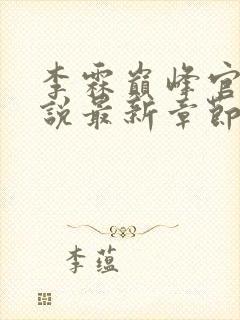 李霖巅峰官
说最新章節
李蕴